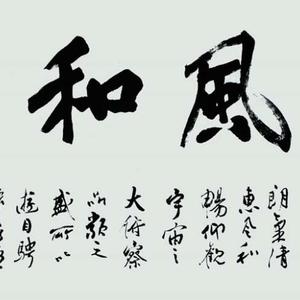 風和
朗氣清
惠風和
暢仰觀
宇宙之
大俯察
品類之
盛所以
遊目騁